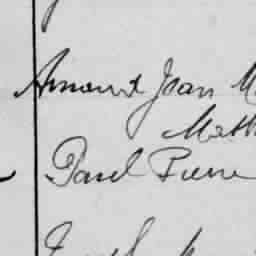 Armand Jean M
Math
Paul Pierre